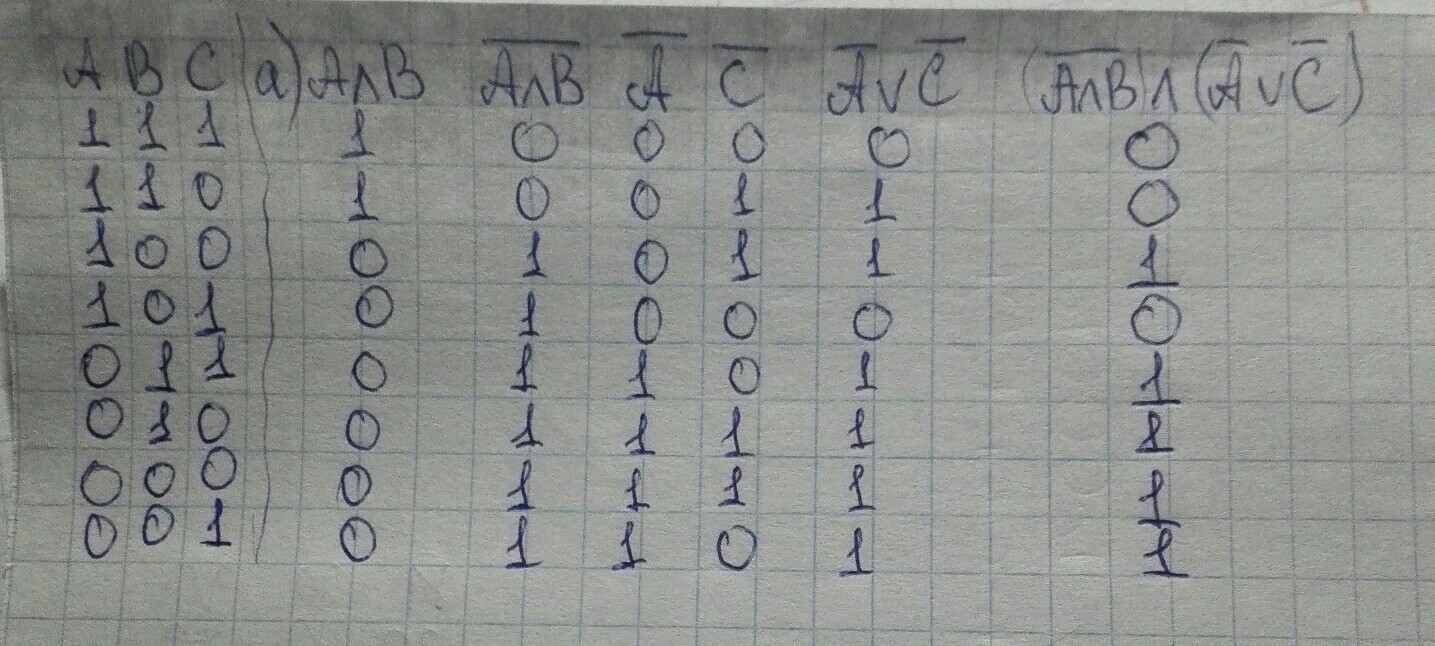 A B C a) A∧B A̅∧̅B̅ A̅ C̅ A̅ ∨ C̅ (A̅∧̅B̅) ∧ (A̅ ∨ C̅)
1 1 1 1 0 0 0 0 0
1 1 0 1 0 0 1 1 0
1 0 0 0 1 0 1 1 1
1 0 1 0 1 0 0 0 0
0 1 1 0 1 1 0 1 1
0 1 0 0 1 1 1 1 1
0 0 0 0 1 1 1 1 1
0 0 1 0 1 1 0 1 1